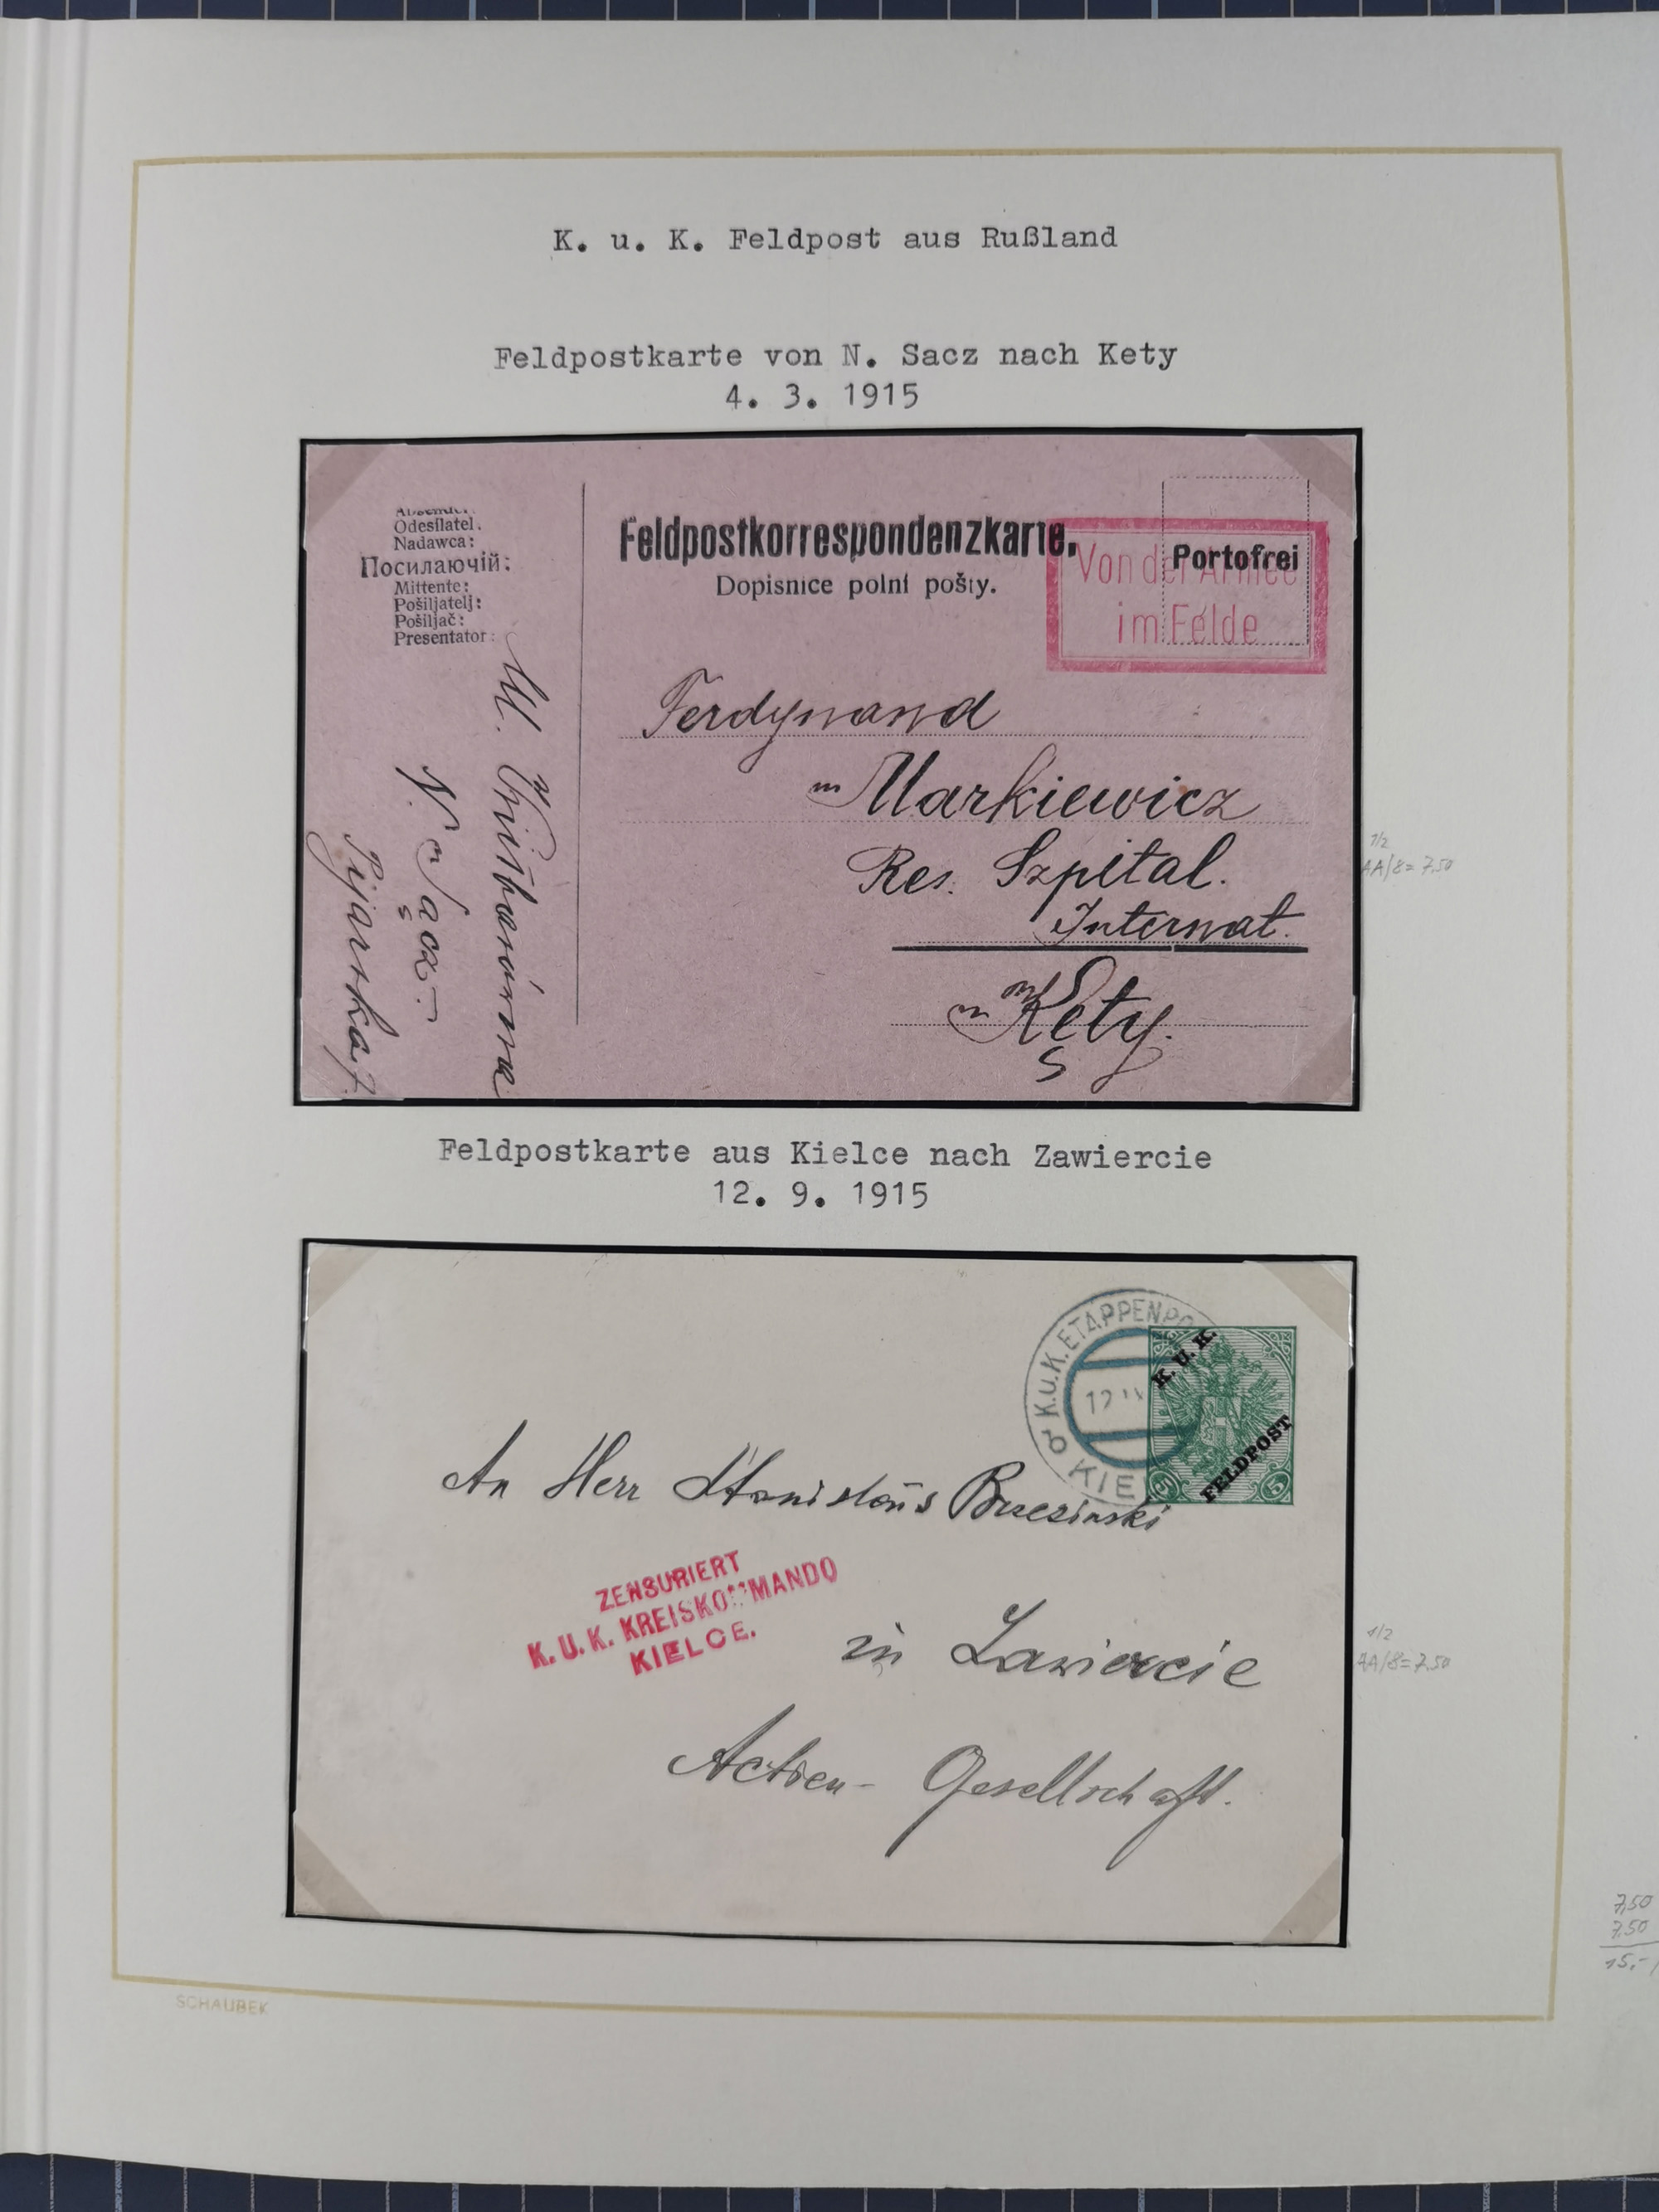 K. u. K. Feldpost aus Rußland
Feldpostkarte von N. Sacz nach Kety
4. 3. 1915
Odesílatel.
Nadawca:
Посилаючій:
Mittente:
Pošiljatelj:
Pošiljač:
Presentator:
M.
N. Sącz
Pijarska 7.
Feldpostkorrespondenzkarte.
Dopisnice polní pošty.
Portofrei
Von der Armee
im Felde
Ferdynand
Markiewicz
Res. Szpital.
Internat.
Kęty.
1/2
AA/8= 7,50
Feldpostkarte aus Kielce nach Zawiercie
12. 9. 1915
K.u.K. ETAPPENPO
KIE
K. U. K.
FELDPOST
5 5
An Herr Stanislaus Brzezinski
ZENSURIERT
K. U. K. KREISKOMMANDO
KIELCE.
in Zawiercie
Actien-Gesellschaft.
1/2
AA/8=7,50
7,50
7,50
15,-
SCHAUBEK